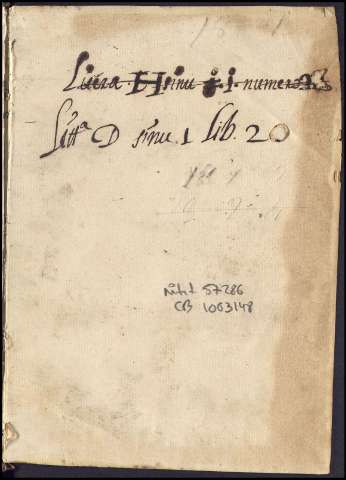 Litera H sinu 1. numero
Litt.ª D sinu 1 lib. 20
57286
CB 1063148